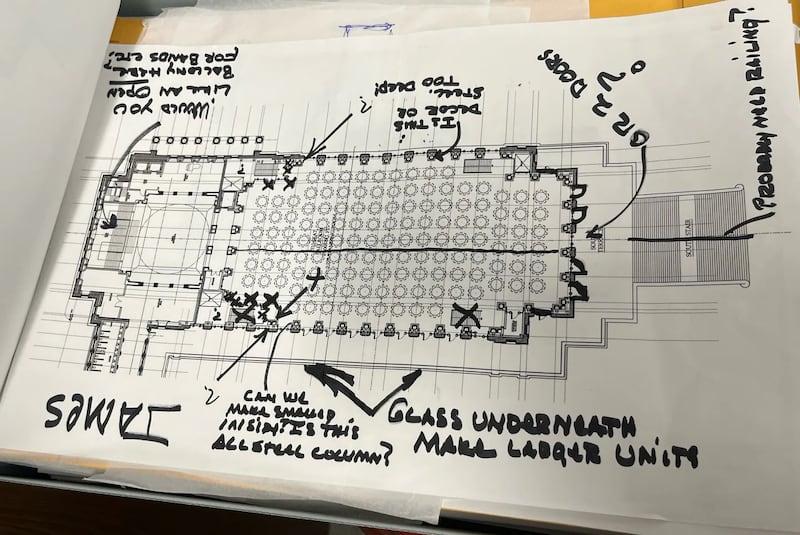 WOULD YOU
LIKE AN OPEN
BALCONY HERE?
FOR BANDS ETC.?
?
IS THIS
DECOR OR
STEEL?
TOO DEEP!
OR 2 DOORS
PROBABLY NEED RAILING?
SOUTH STAIR
JAMES
?
CAN WE
MAKE SMALLER
INSIDE? IS THIS
ALL STEEL COLUMN?
GLASS UNDERNEATH
MAKE LARGER UNITS